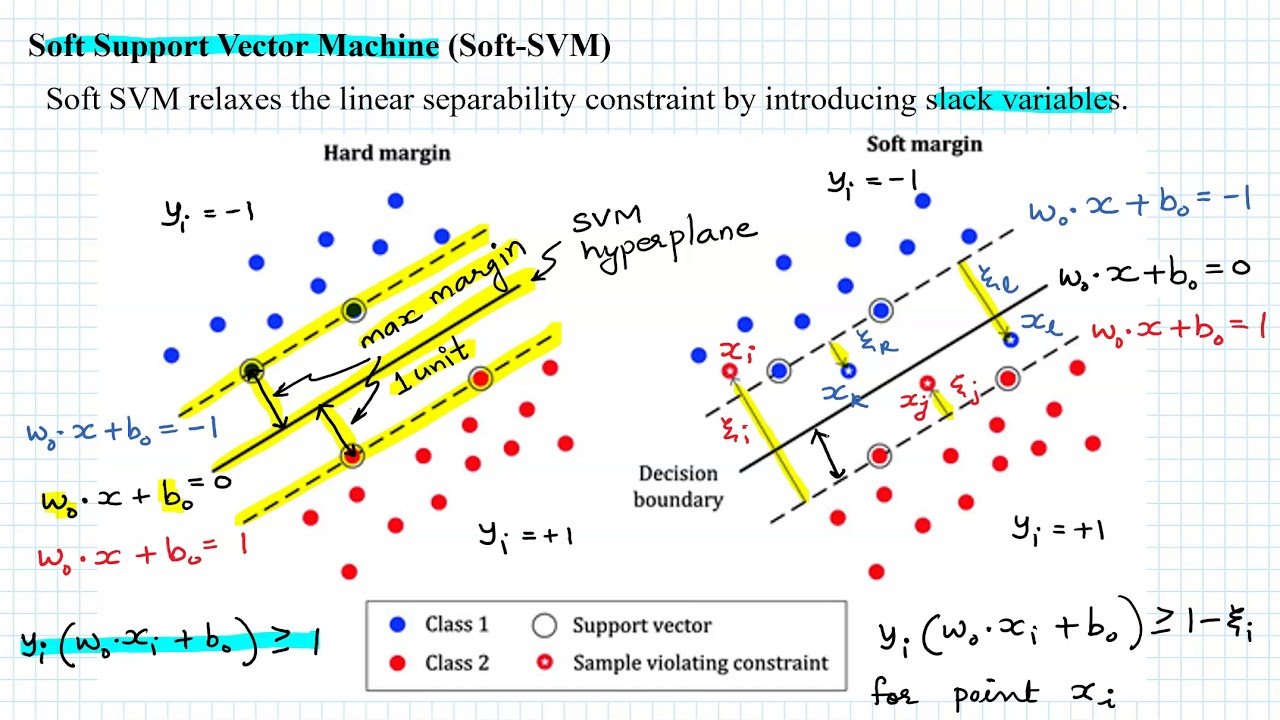 Soft Support Vector Machine (Soft-SVM)
Soft SVM relaxes the linear separability constraint by introducing slack variables.
Hard margin
yᵢ = -1
SVM hyperplane
max margin
1 unit
w₀·x + b₀ = -1
w₀·x + b₀ = 0
w₀·x + b₀ = 1
yᵢ = +1
yᵢ(w₀·xᵢ + b₀) ≥ 1
Soft margin
yᵢ = -1
w₀·x + b₀ = -1
w₀·x + b₀ = 0
w₀·x + b₀ = 1
ξₗ
xₗ
ξₖ
xₖ
xᵢ
ξᵢ
xⱼ
ξⱼ
Decision
boundary
yᵢ = +1
yᵢ(w₀·xᵢ + b₀) ≥ 1 - ξᵢ
for point xᵢ
Class 1
Support vector
Class 2
Sample violating constraint